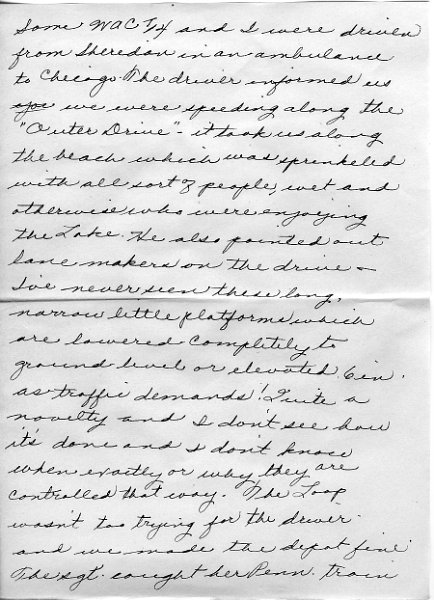 Some WAC T/4 and I were driven
from Sheredan in an ambulance
to Chicago. The driver informed us
we were speeding along the
"Outer Drive" - it took us along
the beach which was sprinkeled
with all sort of people, wet and
otherwise who were enjoying
the Lake. He also pointed out
lane makers on the drive -
I've never seen these long,
narrow little platforms which
are lowered completely to
ground level or elevated 6 in.
as traffic demands! Quite a
novelty and I don't see how
it's done and I don't know
when exactly or why they are
controlled that way. The Loop
wasn't too trying for the driver
and we made the depot fine.
The sgt. caught her Penn. train